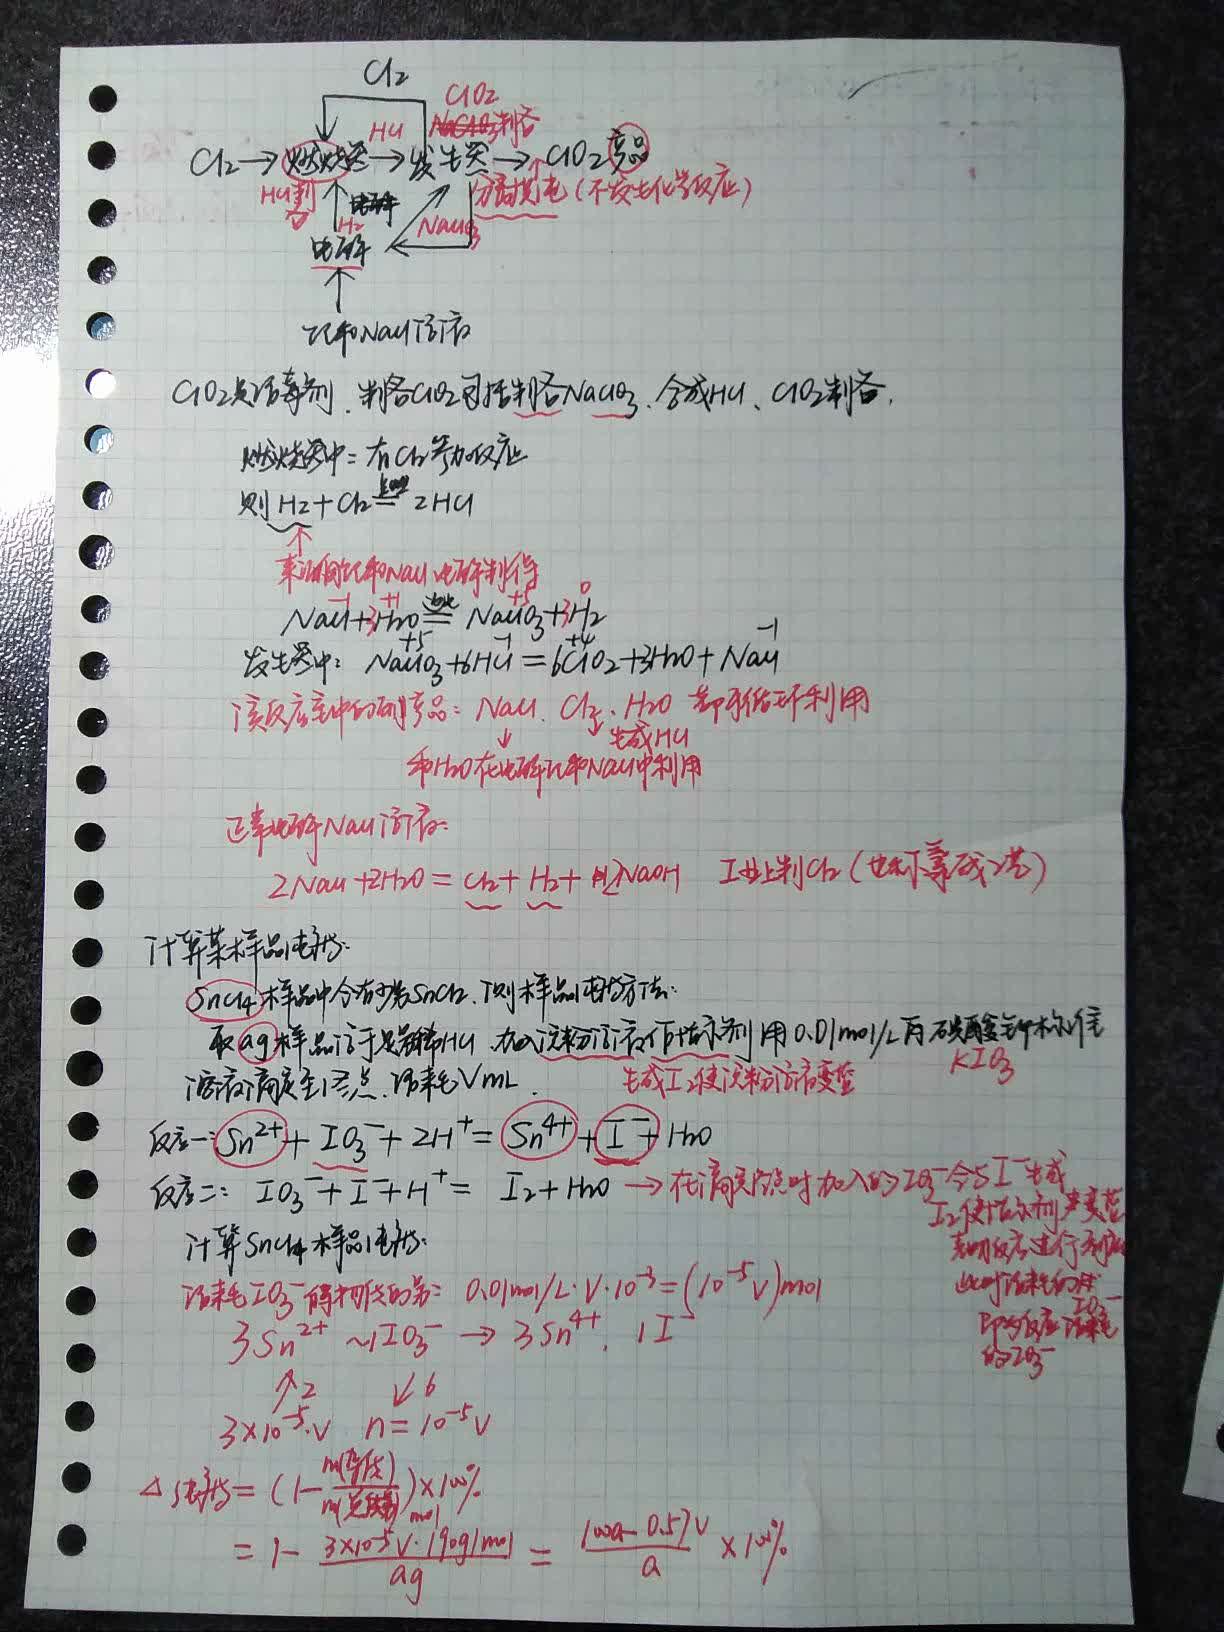 Cl₂
ClO₂
HCl 制备
Cl₂→燃烧器→发生器→ClO₂产品
HCl制备 H₂ 电解 NaClO₃ 分离提纯(不发生化学反应)
电解
饱和NaCl溶液
ClO₂是消毒剂、制备ClO₂可包括制备NaClO₃、合成HCl、ClO₂制备.
燃烧器中:有Cl₂参加反应
则H₂+Cl₂ 点燃= 2HCl
来源用饱和NaCl电解制得
-1 +1 +5 0
NaCl+3H₂O 电解= NaClO₃+3H₂
+5 -1 +4 -1
发生器中: NaClO₃+6HCl=6ClO₂+3H₂O+NaCl
该反应室中的副产品:NaCl、Cl₂、H₂O 都可循环利用
生成HCl
和H₂O在电解饱和NaCl中利用
正常电解NaCl溶液:
2NaCl+2H₂O=Cl₂+H₂+2NaOH 工业上制Cl₂(也叫氯碱工艺)
计算某样品纯度:
SnCl₄样品中含有少量SnCl₂、测样品纯度方法:
取ag样品溶于足量稀HCl、加入淀粉溶液作指示剂用0.01mol/L的碘酸钾标准
KIO₃
溶液滴定至终点、消耗VmL. 生成I₂使淀粉溶液变蓝
反应一:Sn²⁺+IO₃⁻+2H⁺=Sn⁴⁺+I⁻+H₂O
反应二:IO₃⁻+I⁻+H⁺=I₂+H₂O→在滴定终点时加入的IO₃⁻会与I⁻生成
I₂使指示剂变蓝
表明反应进行到
此时消耗的
IO₃⁻
即为反应一消耗
的IO₃⁻
计算SnCl₄样品纯度:
消耗IO₃⁻得物质的量:0.01mol/L·V·10⁻³=(10⁻⁵V)mol
3Sn²⁺~1IO₃⁻→3Sn⁴⁺、1I⁻
↗2 ↙6
3×10⁻⁵·V n=10⁻⁵V
△纯度=(1-m(杂质)/m(总质量))×100%
=1-3×10⁻⁵V mol·190g/mol/ag=100a-0.57V/a×100%